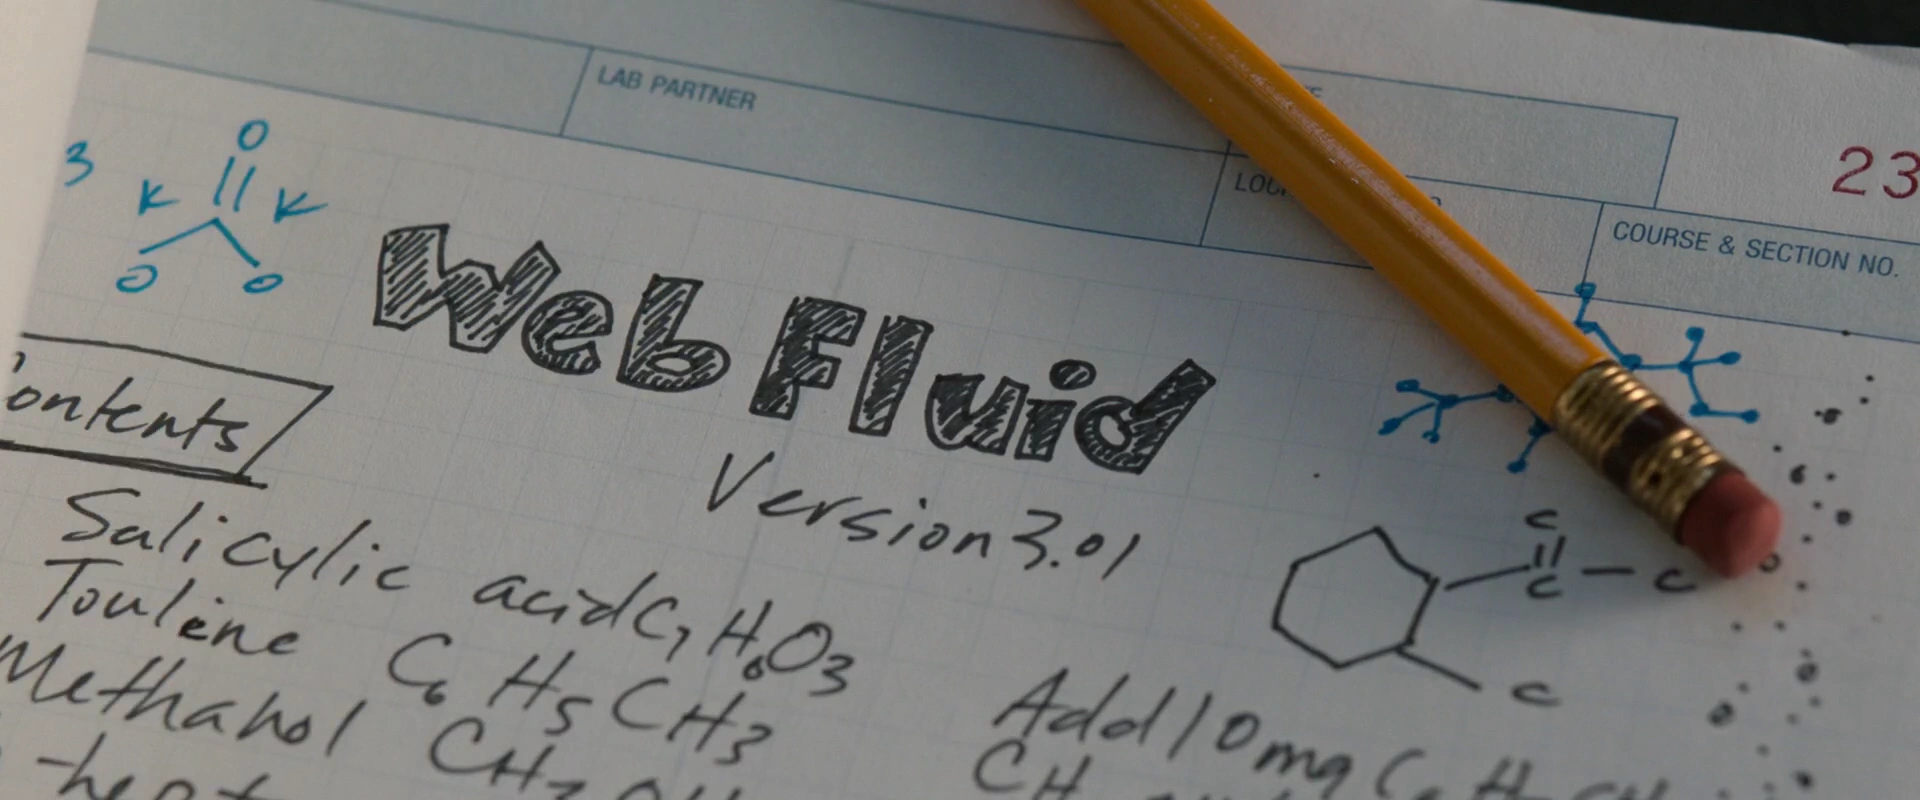 LAB PARTNER
23
COURSE & SECTION NO.
3
O
K K
O O
Web Fluid
Version 3.01
Contents
Salicylic acid C7H6O3
Toulene C6H5CH3
Methanol CH3OH
C
C C
C
Add 10 mg
CH